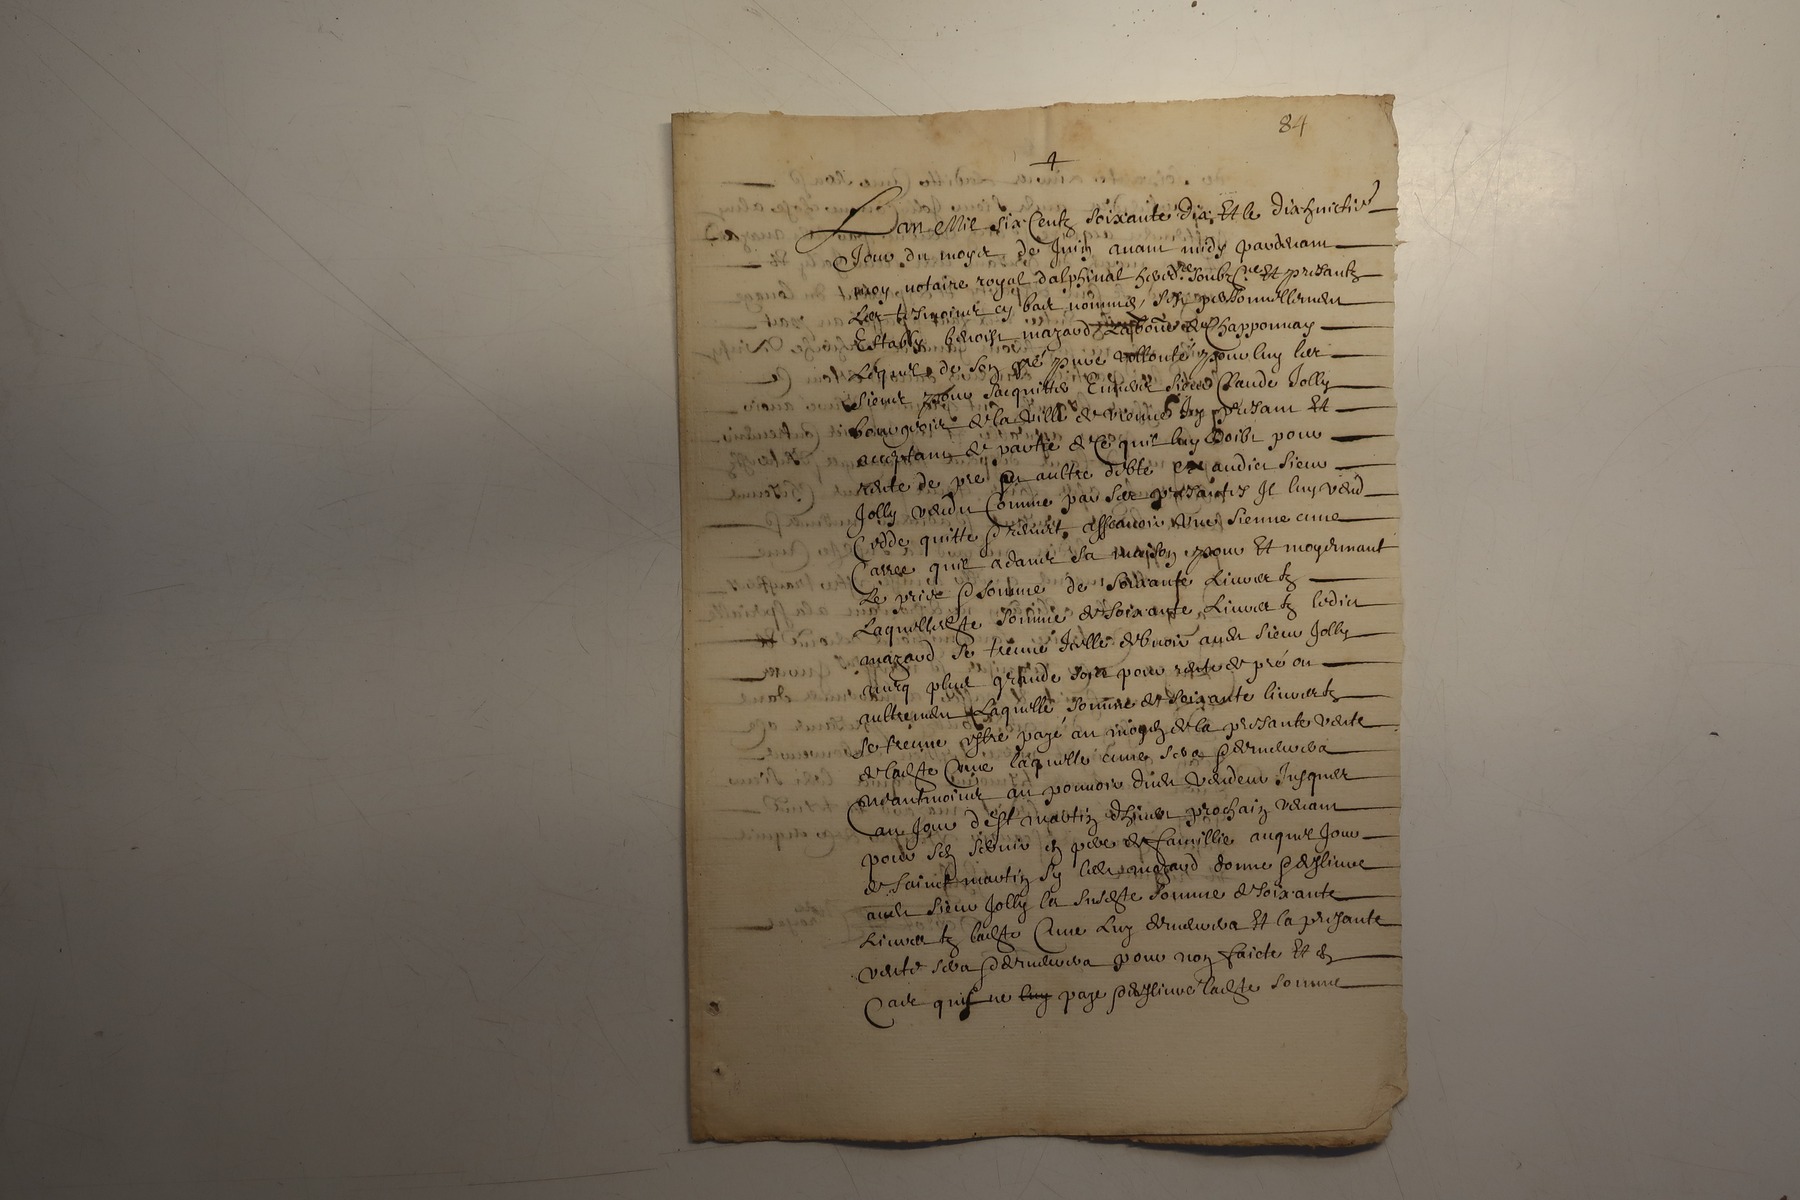 84
Lan Mil six Centz soixante dix Et le dixhuictie
Jour du moys de Juin avant midy pardevant
moy notaire royal dalphinal soubzne Et presantz
Les tesmoins cy bas nommes, sest personnellement
Estably benoist mazard de Chapponnay
Lequel de son gre pure vollonté pour luy les
siens pour sacquitter Envers sieur Claude Jolly
bourgeois de la ville de vienne Icy presant Et
acceptant de partie de Ce quil luy doibt pour
rente de pre ou aultre debte audict sieur
Jolly vendu Comme par ses presantes Il luy vend
Cedde quitte remet, assçavoir Une sienne cuve
Carree quil a dans sa maison pour Et moyennant
Le prix somme de soixante Livres tz
Laquelle somme de soixante Livres tz ledict
mazard se treuve Icelle debvoir audt sieur Jolly
plus grande pour rente de pré ou
aultrement Laquelle somme de soixante livres tz
se treuve estre payé au moyen de la presante vente
de ladte Cuve laquelle cuve sera demeurera
neantmoins au pouvoir dudt vendeur Jusques
au Jour de st martin dhiver prochain venant
pour sen servir en pere de famillie auquel Jour
de sainct martin sy ledt mazard donne deslivre
audt sieur Jolly la susdte somme de soixante
Livres tz ladte Cuve Luy demeurera Et la presante
vente sera demeurera pour non faicte Et en
Cas quil ne luy paye deslivre ladte somme